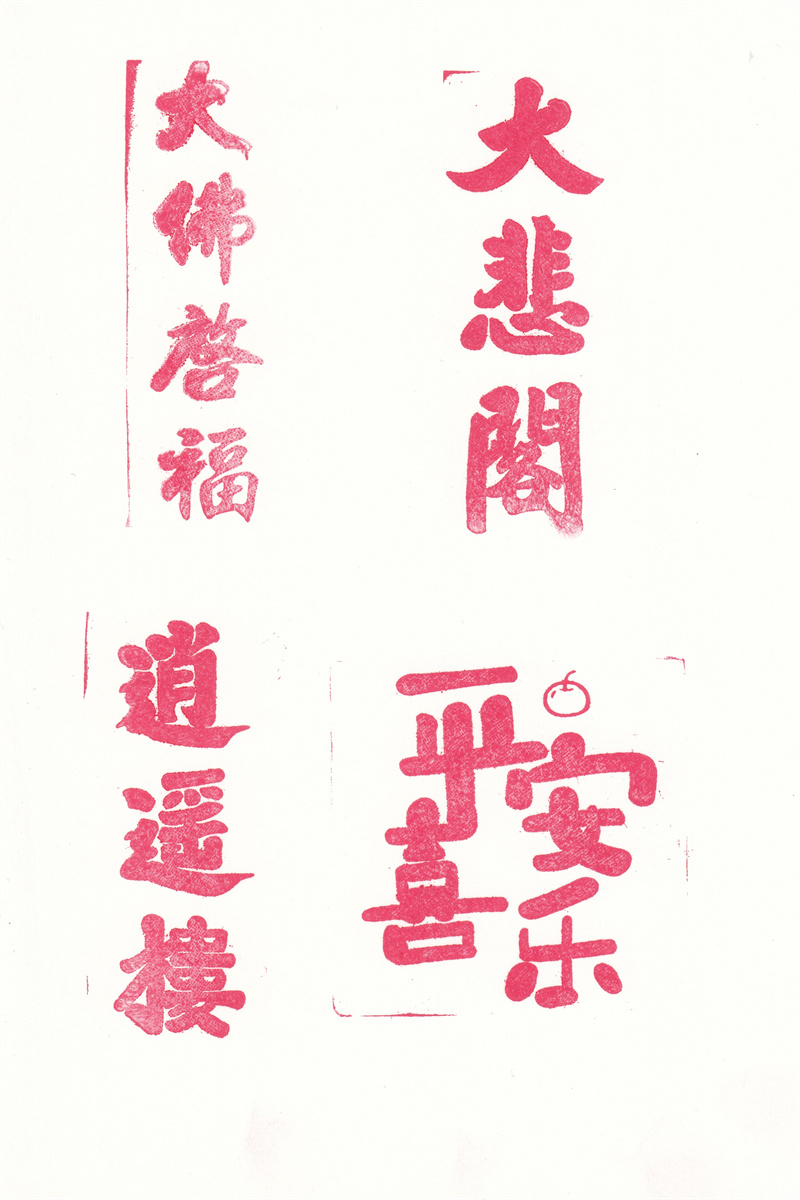 大佛啓福
大悲閣
逍遥樓
平安
喜乐